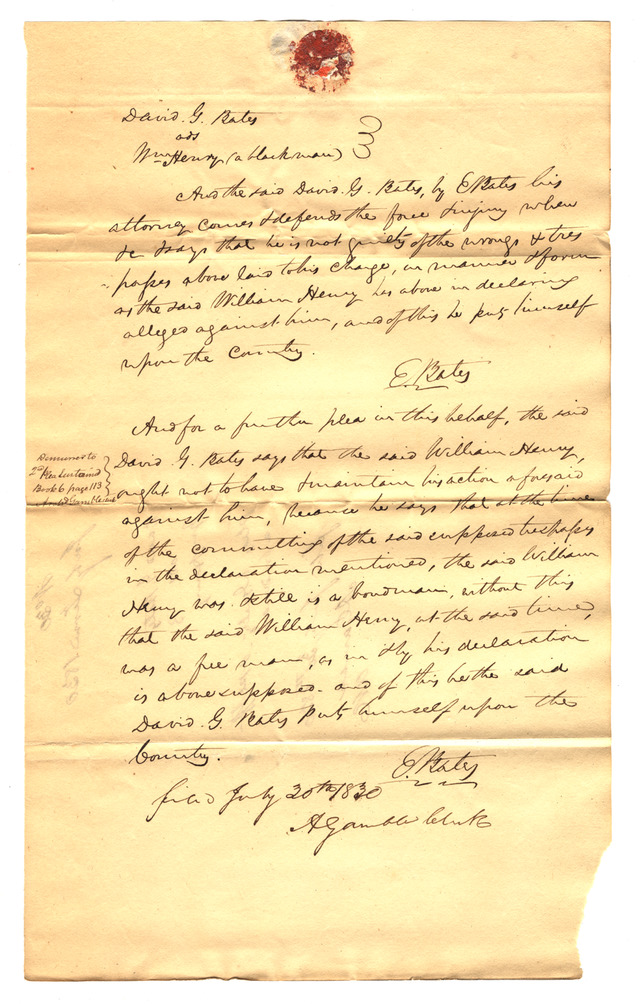 David. G. Bates
ads
Wm Henry (a black man)
And the said David. G. Bates, by E Bates his
attorney comes & defends the force & injury when
&c & says that he is not guilty of the wrongs & tres
passes above laid to his charge, in manner & form
as the said William Henry has above in declaring
alleged against him, and of this he puts himself
upon the Country.
E. Bates
And for a further plea in this behalf, the said
David G. Bates says that the said William Henry,
ought not to have & maintain his action aforesaid
against him, because he says that at the time
of the committing of the said supposed trespasses
in the declaration mentioned, the said William
Henry was & still is a bondman, without this
that the said William Henry, at the said time,
was a free man, as in & by his declaration
is above supposed. and of this he the said
David. G. Bates puts himself upon the
Country.
E. Bates
filed July 20th 1830
A Gamble Clerk
Demurrer to
2d Plea
Book 6 page 113